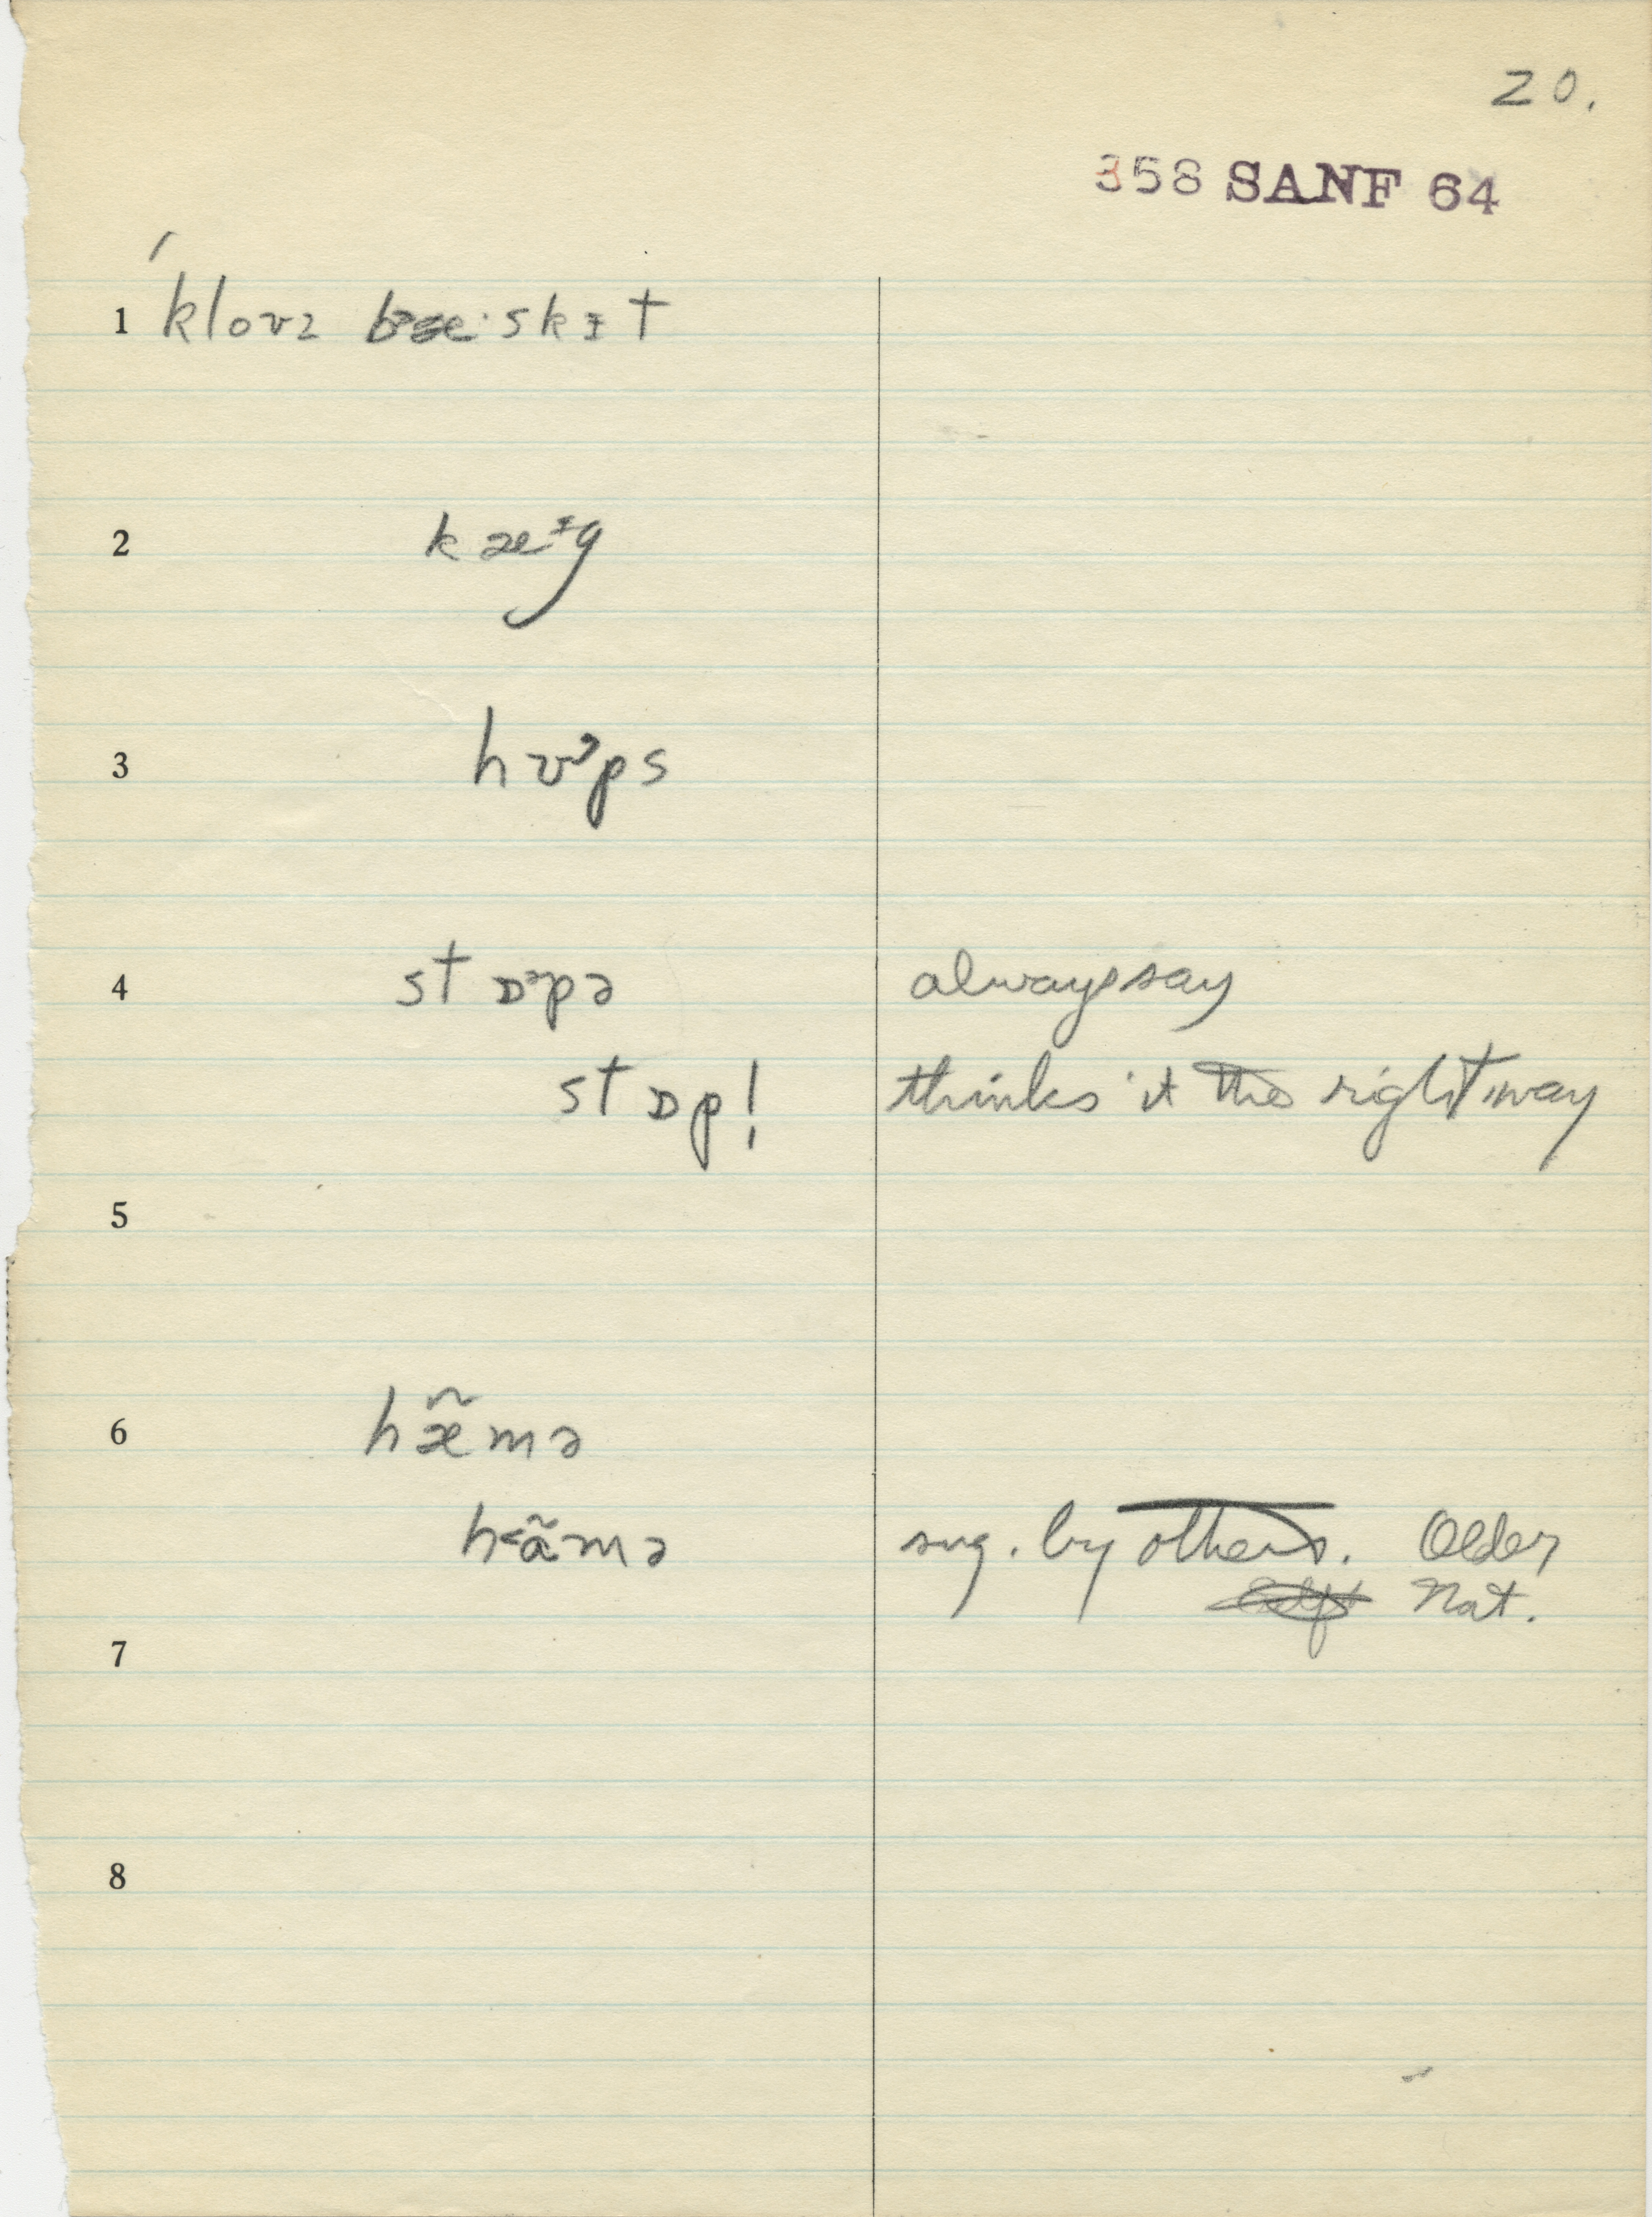 20.
358 SANF 64
1 ´klouz bæ·skɪt
2 kæᶦg
3 hʊᵊps
4 stɒᵊpə always say
stɒp! thinks it the right way
5
6 hæ̃mə
h<ãmə sug. by others. Older
Nat.
7
8